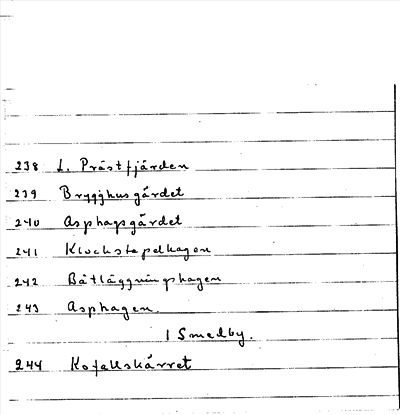 238 L. Prästfjärden
239 Brygghusgärdet
240 Asphagsgärdet
241 Klockstapelhagen
242 Båtläggningshagen
243 Asphagen.
1 Smedby.
244 Kofallskärret